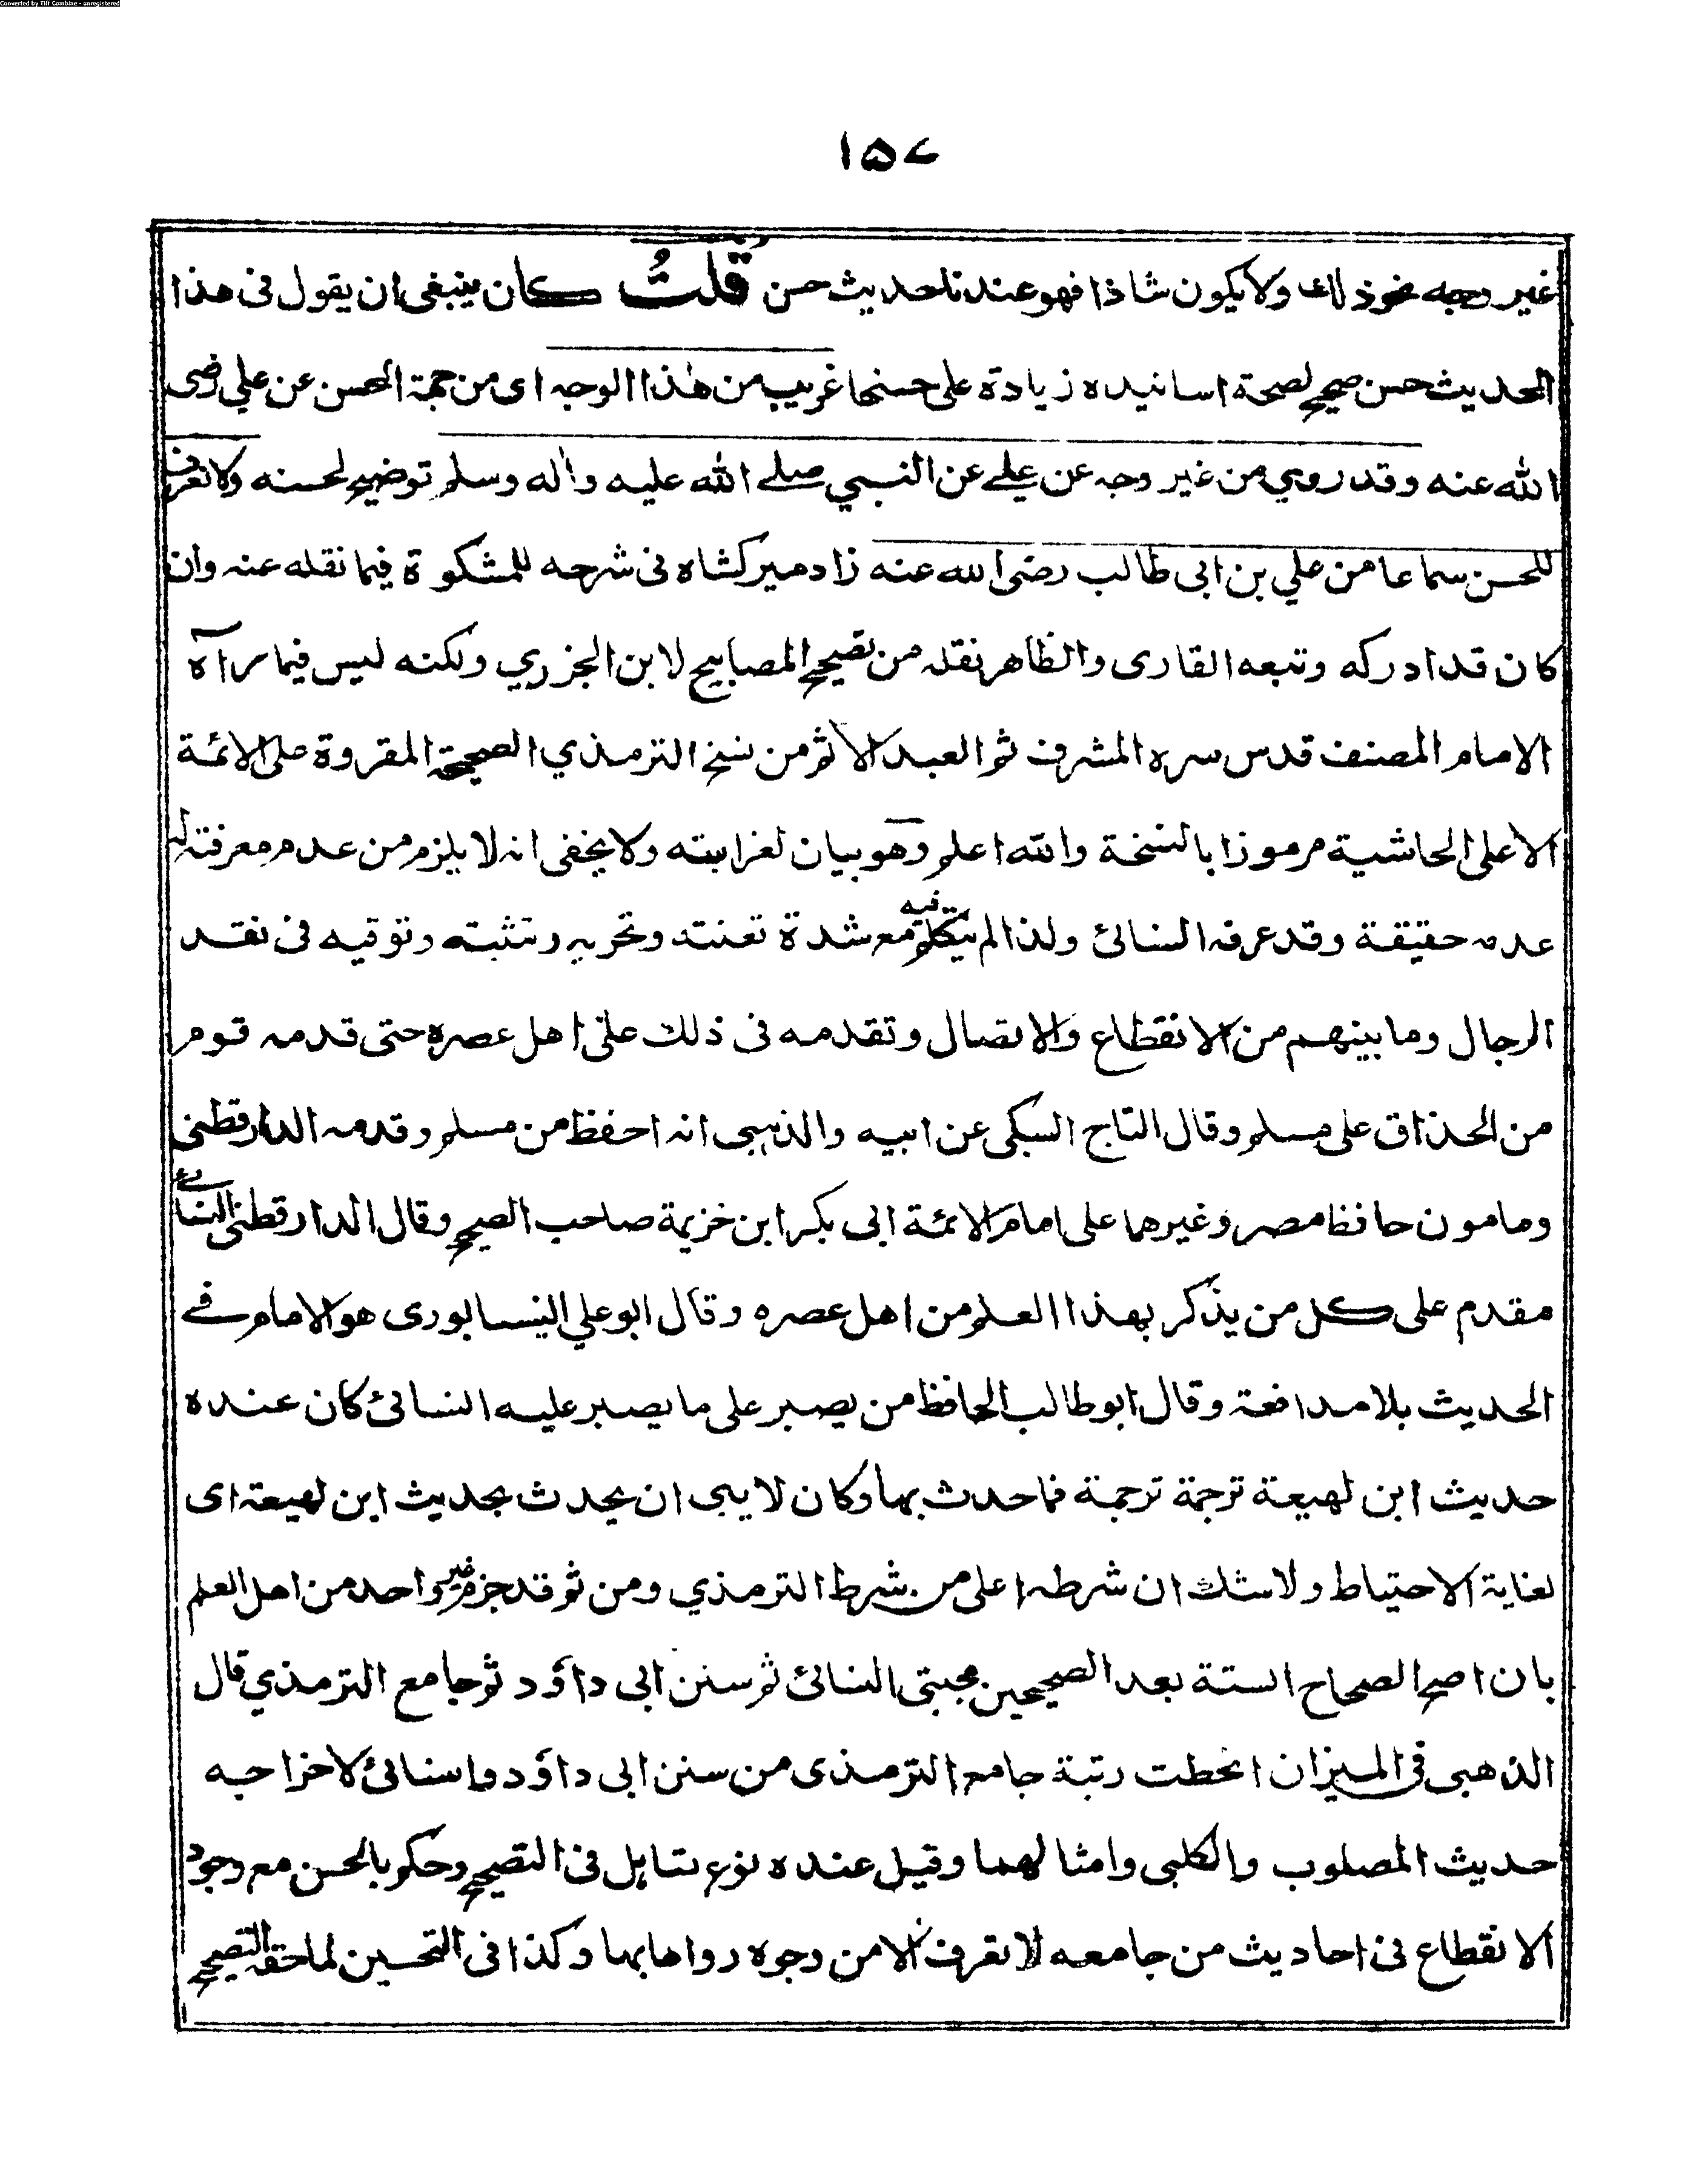 Converted by Tiff Combine - unregistered
١٥٧
غير وجه نحو ذلك ولا يكون شاذا فهو عندنا حديث حسن قلتُ كان ينبغى ان يقول فى هذا
الحديث حسن صحيح لصحة اسانيده زيادة على حسنها غريب من هذا الوجه اى من جهة الحسن عن علي رضى
الله عنه وقد روي من غير وجه عن علے عن النبي صلے الله عليه واله وسلم توضيح لحسنه ولا نعرف
للحسن سماعا من علي بن ابى طالب رضى الله عنه زاد ميركشاه فى شرحه للمشكوة فيما نقله عنه وان
كان قد ادركه وتبعه القارى والظاهر نقله من تصحيح المصابيح لابن الجزري ولكنه ليس فيما راٰه
الامام المصنف قدس سره المشرف ثم العبد الاثم من نسخ الترمذي الصحيحة المقروة على الائمة
الا على الحاشية مرموزا بالنسخة والله اعلم وهو بيان لغرابته ولا يخفى انه لا يلزم من عدم معرفته له
عدمه حقيقة وقد عرفه النسائئ ولذا لم يتكلم فيه مع شدة تعنته وتحريه وتثبته وتوقيه فى نقد
الرجال وما بينهم من الانقطاع والاتصال وتقدمه فى ذلك على اهل عصره حتى قدمه قوم
من الحذاق على مسلم وقال التاج السبكى عن ابيه والذهبى انه احفظ من مسلم وقدمه الدارقطنى
ومامون حافظ مصر وغيرهما على امام الائمة ابى بكر ابن خزيمة صاحب الصحيح وقال الدارقطنى النسائے
مقدم على كل من يذكر بهذا العلم من اهل عصره وقال ابو علي النيسابورى هو الامام فے
الحديث بلا مدافعة وقال ابو طالب الحافظ من يصبر على ما يصبر عليه النسائئ كان عنده
حديث ابن لهيعة ترجمة ترجمة فما حدث بها وكان لا يرى ان يحدث بحديث ابن لهيعة اى
لغاية الاحتياط ولا شك ان شرطه اعلى من شرط الترمذي ومن ثم قد جزم غير واحد من اهل العلم
بان اصح الصحاح الستة بعد الصحيحين مجتبى النسائئ ثم سنن ابى داؤد ثم جامع الترمذي قال
الذهبى فى الميزان انحطت رتبة جامع الترمذى من سنن ابى داؤد والنسائئ لاخراجه
حديث المصلوب والكلبى وامثالهما وقيل عنده نوع تساهل فى التصحيح وحكم بالحسن مع وجود
الانقطاع فى احاديث من جامعه لا تعرف الا من وجوه رواها بها وكذا فى التحسين لما حقه التصحيح